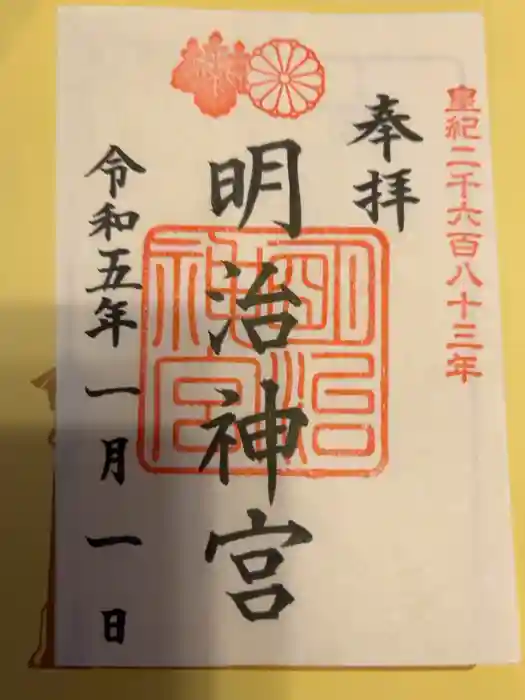 皇紀二千六百八十三年
奉拝
明治神宮
明治神宮
令和五年一月一日